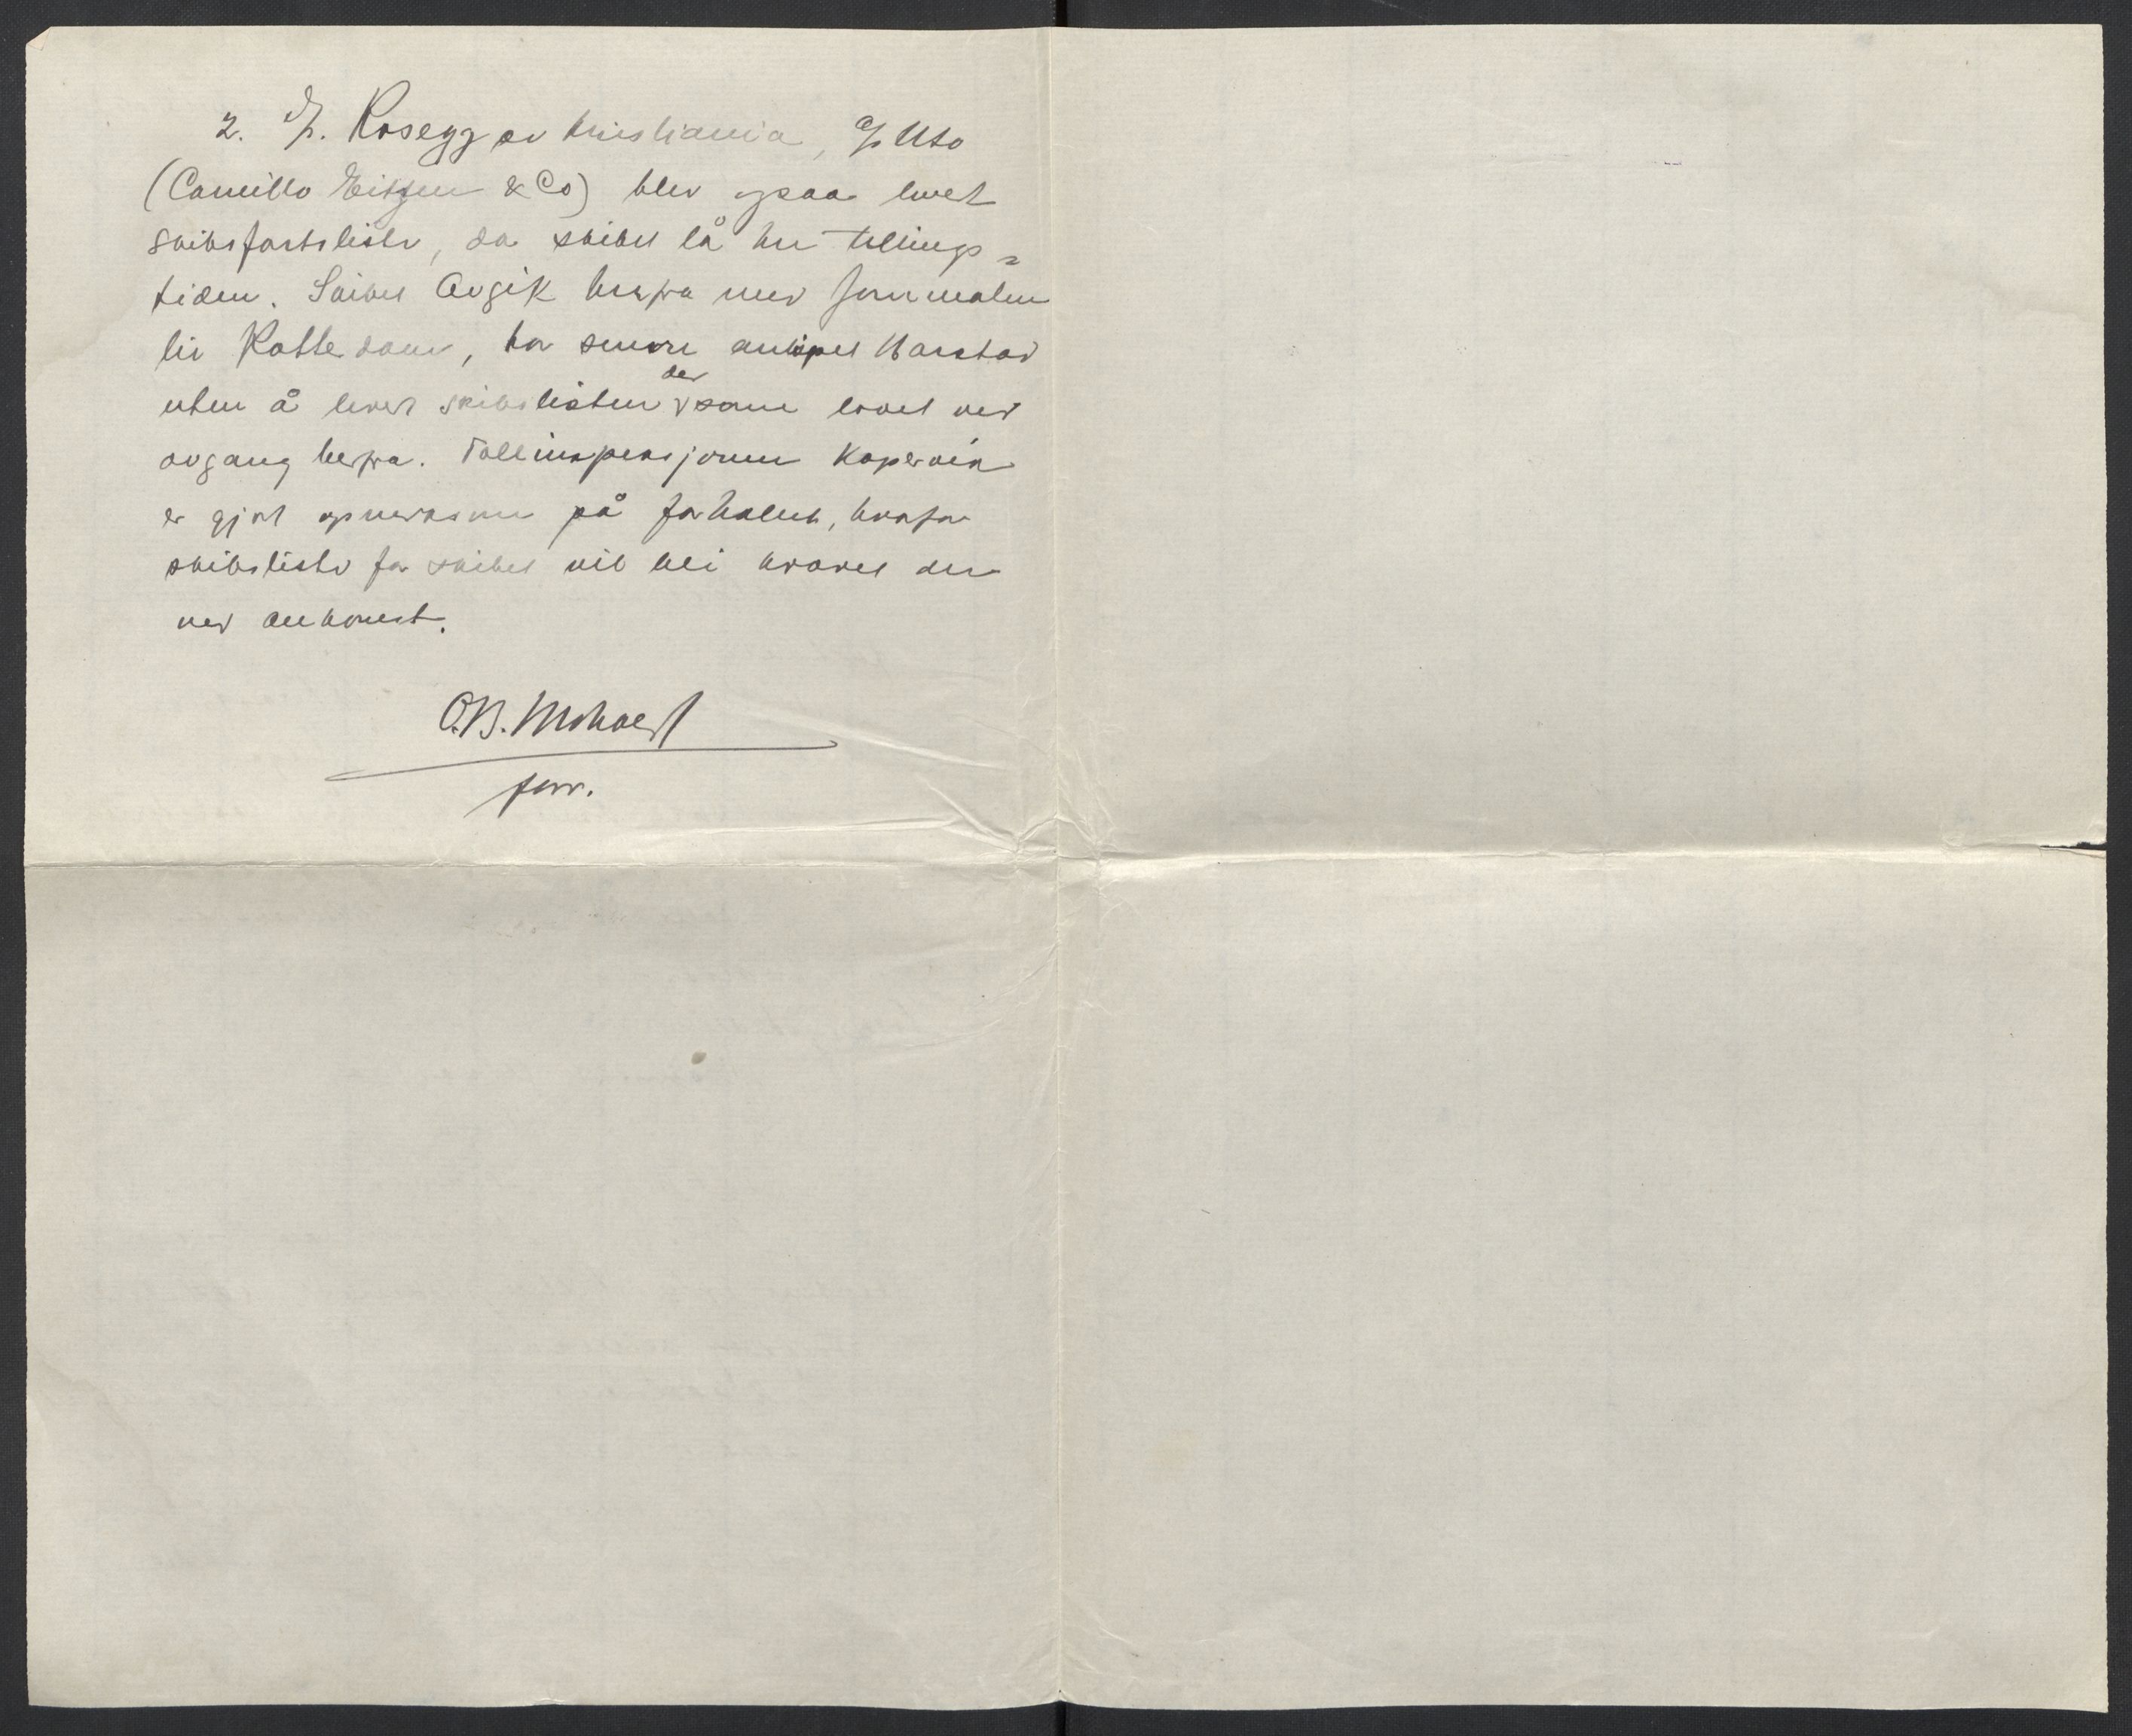 2. D/S. Rosegg av Kristiania, A/S Uto
(Camillo Eitzen & Co) blev ogsaa lovet
skibsfartsliste, da skibet lå her tellings=
tiden. Skibet Avgik herfra med jernmalm
til Rotterdam, har senere anløpet Harstad
uten å levert skibslisten der som lovet ved
avgang herfra. Tollinspeksjonen Kopervik
er gjort opmerksom på forholdet, hvorfor
skibsliste for skibet vil bli krævet der
ved ankomst.
O.B.